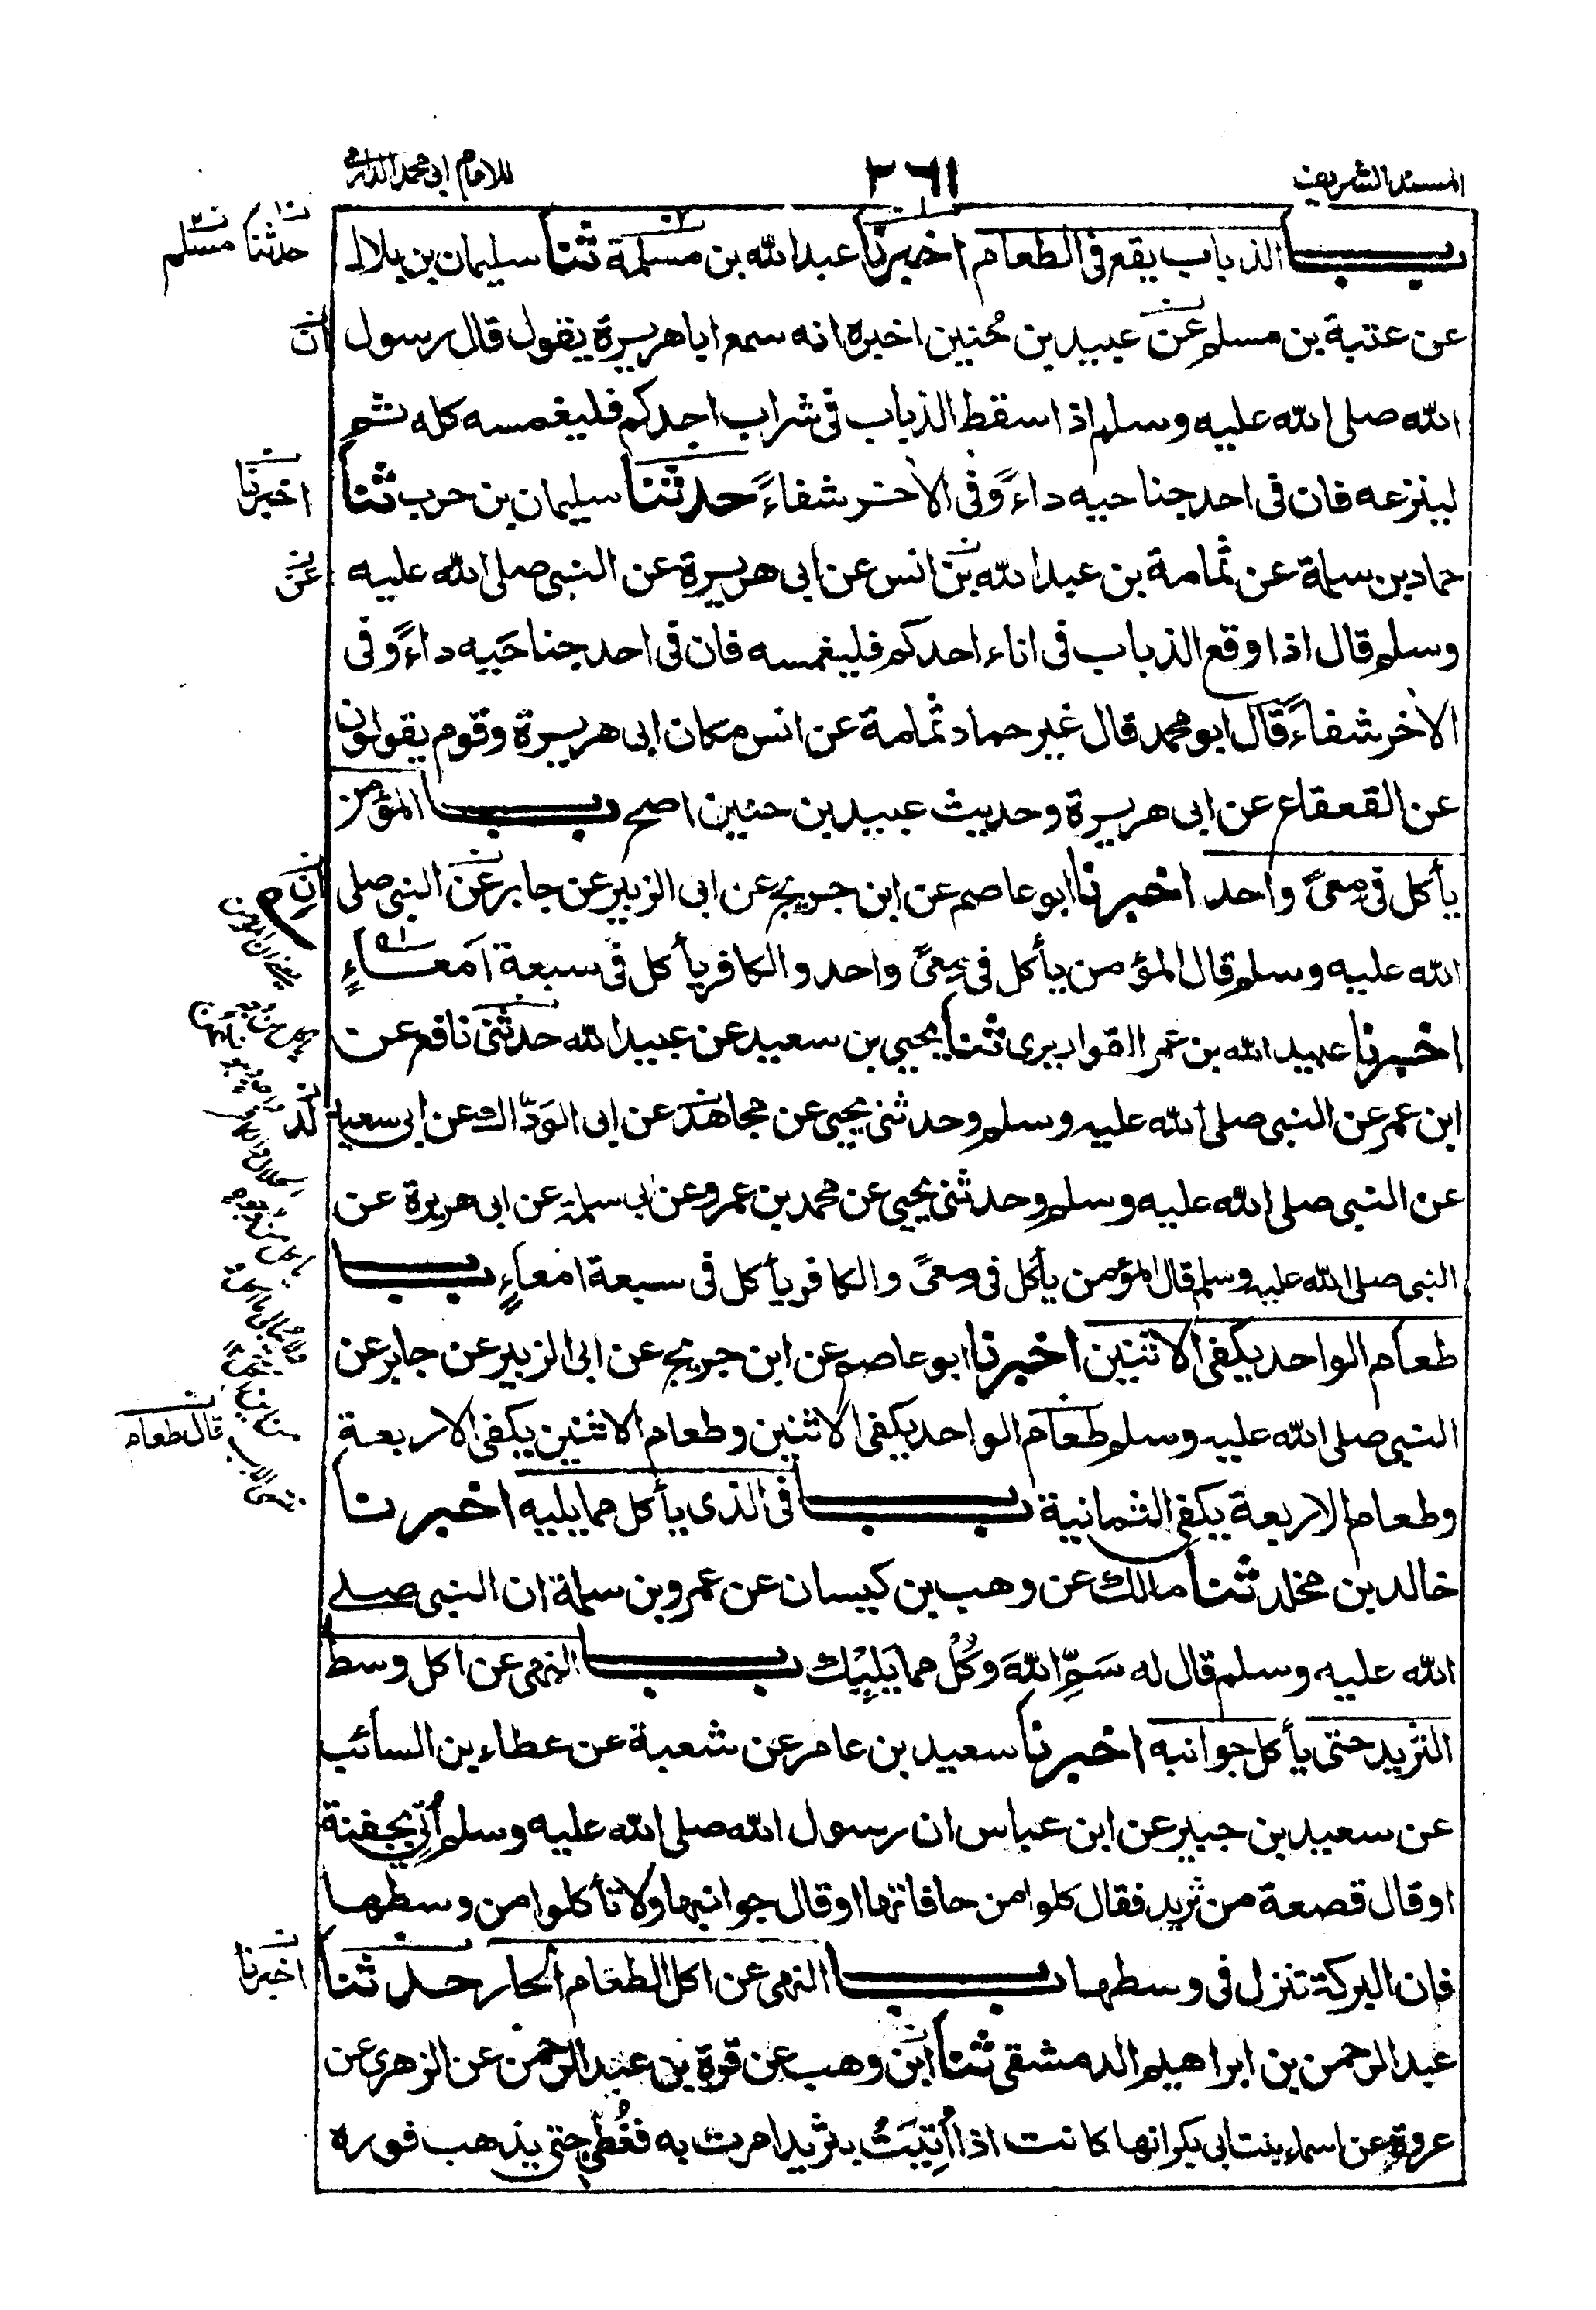 المسند الشريف
٢٦١
للامام ابي محمد الدارمي
باب الذباب يقع فى الطعام اخبرنا عبد الله بن مسلمة ثنا سليمان بن بلال
عن عتبة بن مسلم عن عبيد بن حُنين اخبره انه سمع ابا هريرة يقول قال رسول
الله صلى الله عليه وسلم اذا سقط الذباب فى شراب احدكم فليغمسه كله ثم
لينزعه فان فى احد جناحيه داءً وفى الاخر شفاءً حدثنا سليمان بن حرب ثنا
حماد بن سلمة عن ثمامة بن عبد الله بن انس عن ابى هريرة عن النبى صلى الله عليه
وسلم قال اذا وقع الذباب فى اناء احدكم فليغمسه فان فى احد جناحَيه داءً وفى
الاخر شفاءً قال ابو محمد قال غير حماد ثمامة عن انس مكان ابى هريرة وقوم يقولون
عن القعقاع عن ابى هريرة وحديث عبيد بن حنين اصح باب المؤمن
يأكل فى معىً واحد اخبرنا ابو عاصم عن ابن جريج عن ابى الزبير عن جابر عن النبى صلى
الله عليه وسلم قال المؤمن يأكل فى معىً واحد والكافر يأكل فى سبعة امعاءٍ
اخبرنا عبيد الله بن عمر القواريرى ثنا يحيى بن سعيد عن عبيد الله حدثنى نافع عن
ابن عمر عن النبى صلى الله عليه وسلم وحدثنى يحيى عن مجاهد عن ابى الوَدّاك عن ابى سعيد
عن النبى صلى الله عليه وسلم وحدثنى يحيى عن محمد بن عمرو عن ابى سلمة عن ابى هريرة عن
النبى صلى الله عليه وسلم قال المؤمن يأكل فى معىً والكافر يأكل فى سبعة امعاءٍ باب
طعام الواحد يكفى الاثنين اخبرنا ابو عاصم عن ابن جريج عن ابى الزبير عن جابر عن
النبى صلى الله عليه وسلم طعام الواحد يكفى الاثنين وطعام الاثنين يكفى الاربعة
وطعام الاربعة يكفى الثمانية باب فى الذى يأكل مما يليه اخبرنا
خالد بن مخلد ثنا مالك عن وهب بن كيسان عن عمرو بن سلمة ان النبى صلى
الله عليه وسلم قال له سَمِّ اللهَ وكُلْ مما يَلِيْك باب النهى عن اكل وسط
الثريد حتى يأكل جوانبه اخبرنا سعيد بن عامر عن شعبة عن عطاء بن السائب
عن سعيد بن جبير عن ابن عباس ان رسول الله صلى الله عليه وسلم اُتِي بجفنة
او قال قصعة من ثريد فقال كلوا من حافاتها او قال جوانبها ولا تأكلوا من وسطها
فان البركة تنزل فى وسطها باب النهى عن اكل الطعام الحار حدثنا
عبد الرحمن بن ابراهيم الدمشقى ثنا ابن وهب عن قرة بن عبد الرحمن عن الزهرى عن
عروة عن اسماء بنت ابى بكر انها كانت اذا اُتِيَتْ بثريد امرت به فغُطِّي حتى يذهب فوره
حدثنا مسلم
ان
اخبرنا
عن
ان
قال طعام
اخبرنا